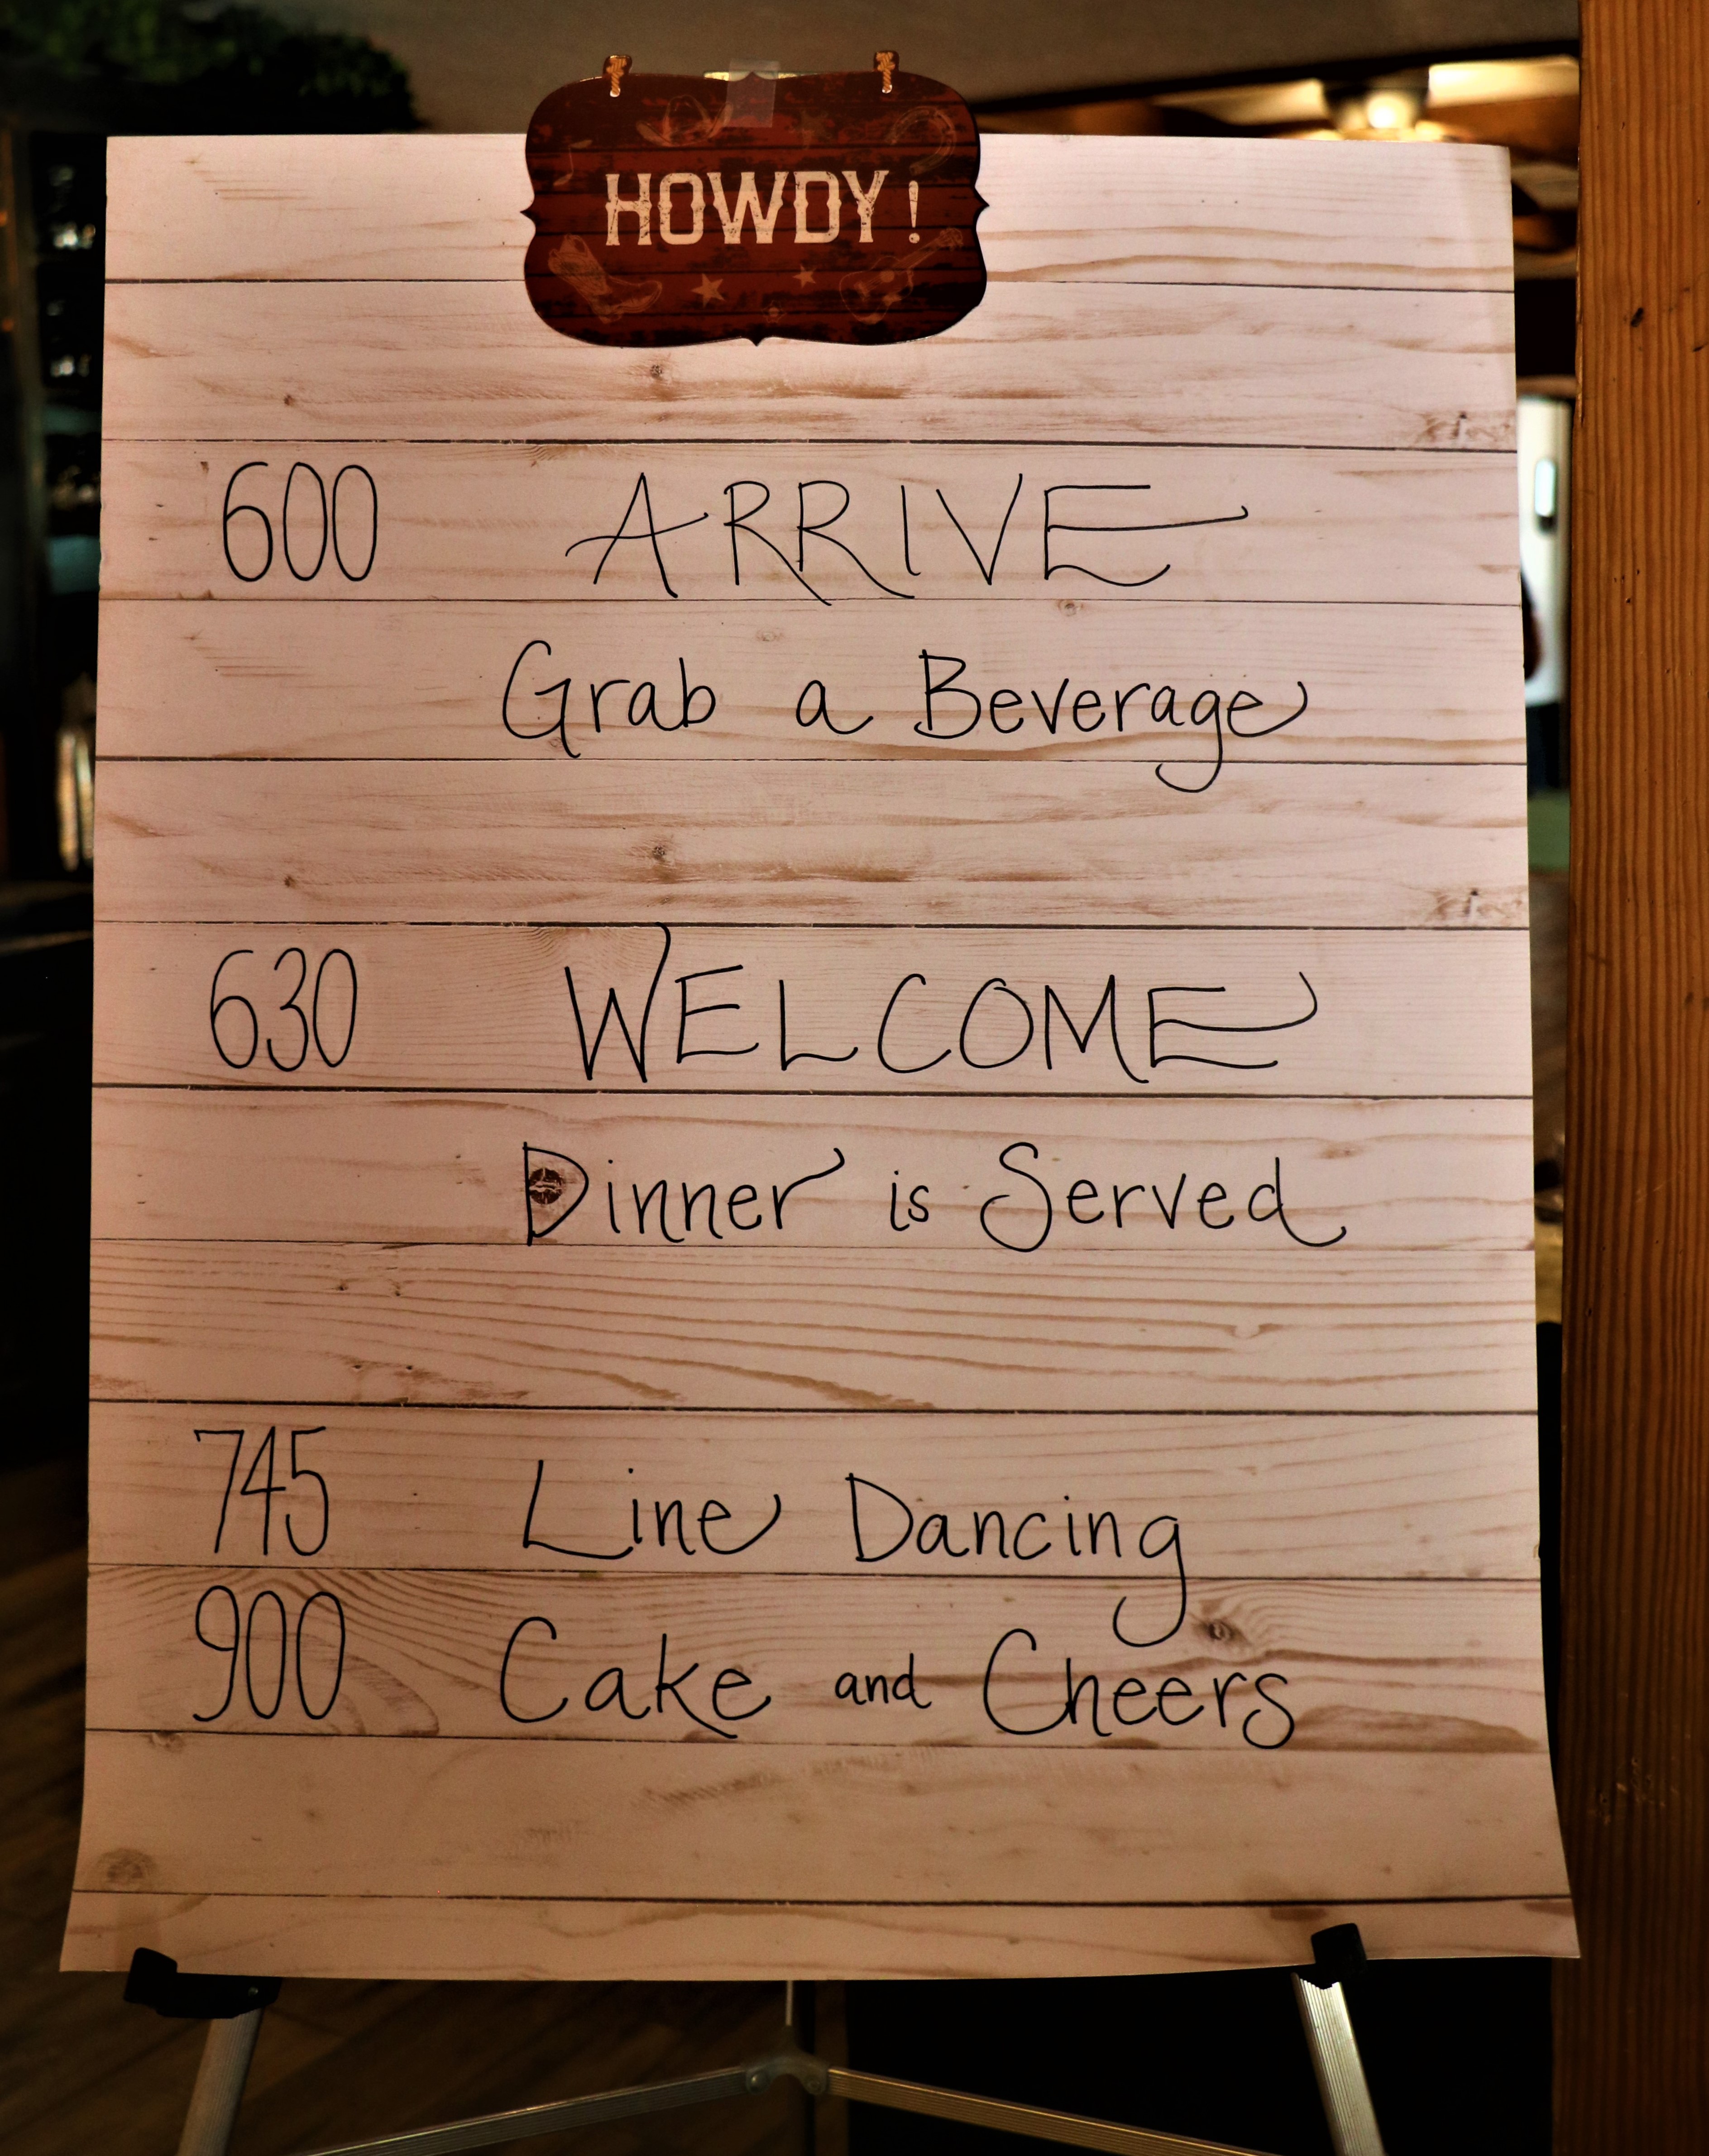 HOWDY!
600 ARRIVE
Grab a Beverage
630 WELCOME
Dinner is Served
745 Line Dancing
900 Cake and Cheers